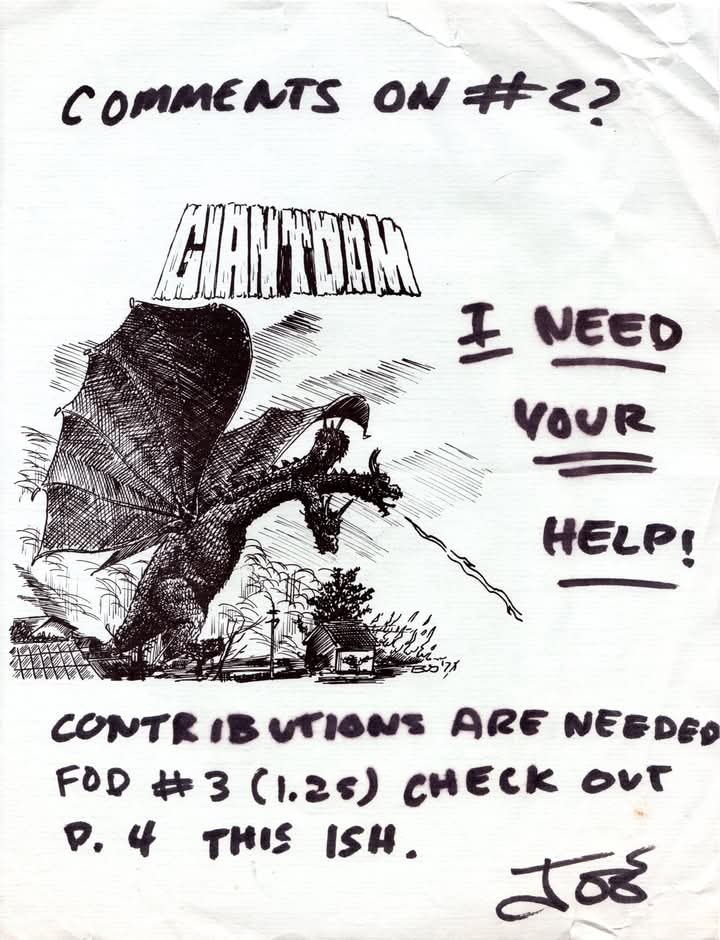 COMMENTS ON #2?
GIANTDOM
I NEED
YOUR
HELP!
CONTRIBUTIONS ARE NEEDED
FOD #3 (1.25) CHECK OUT
P. 4 THIS ISH.
JOE